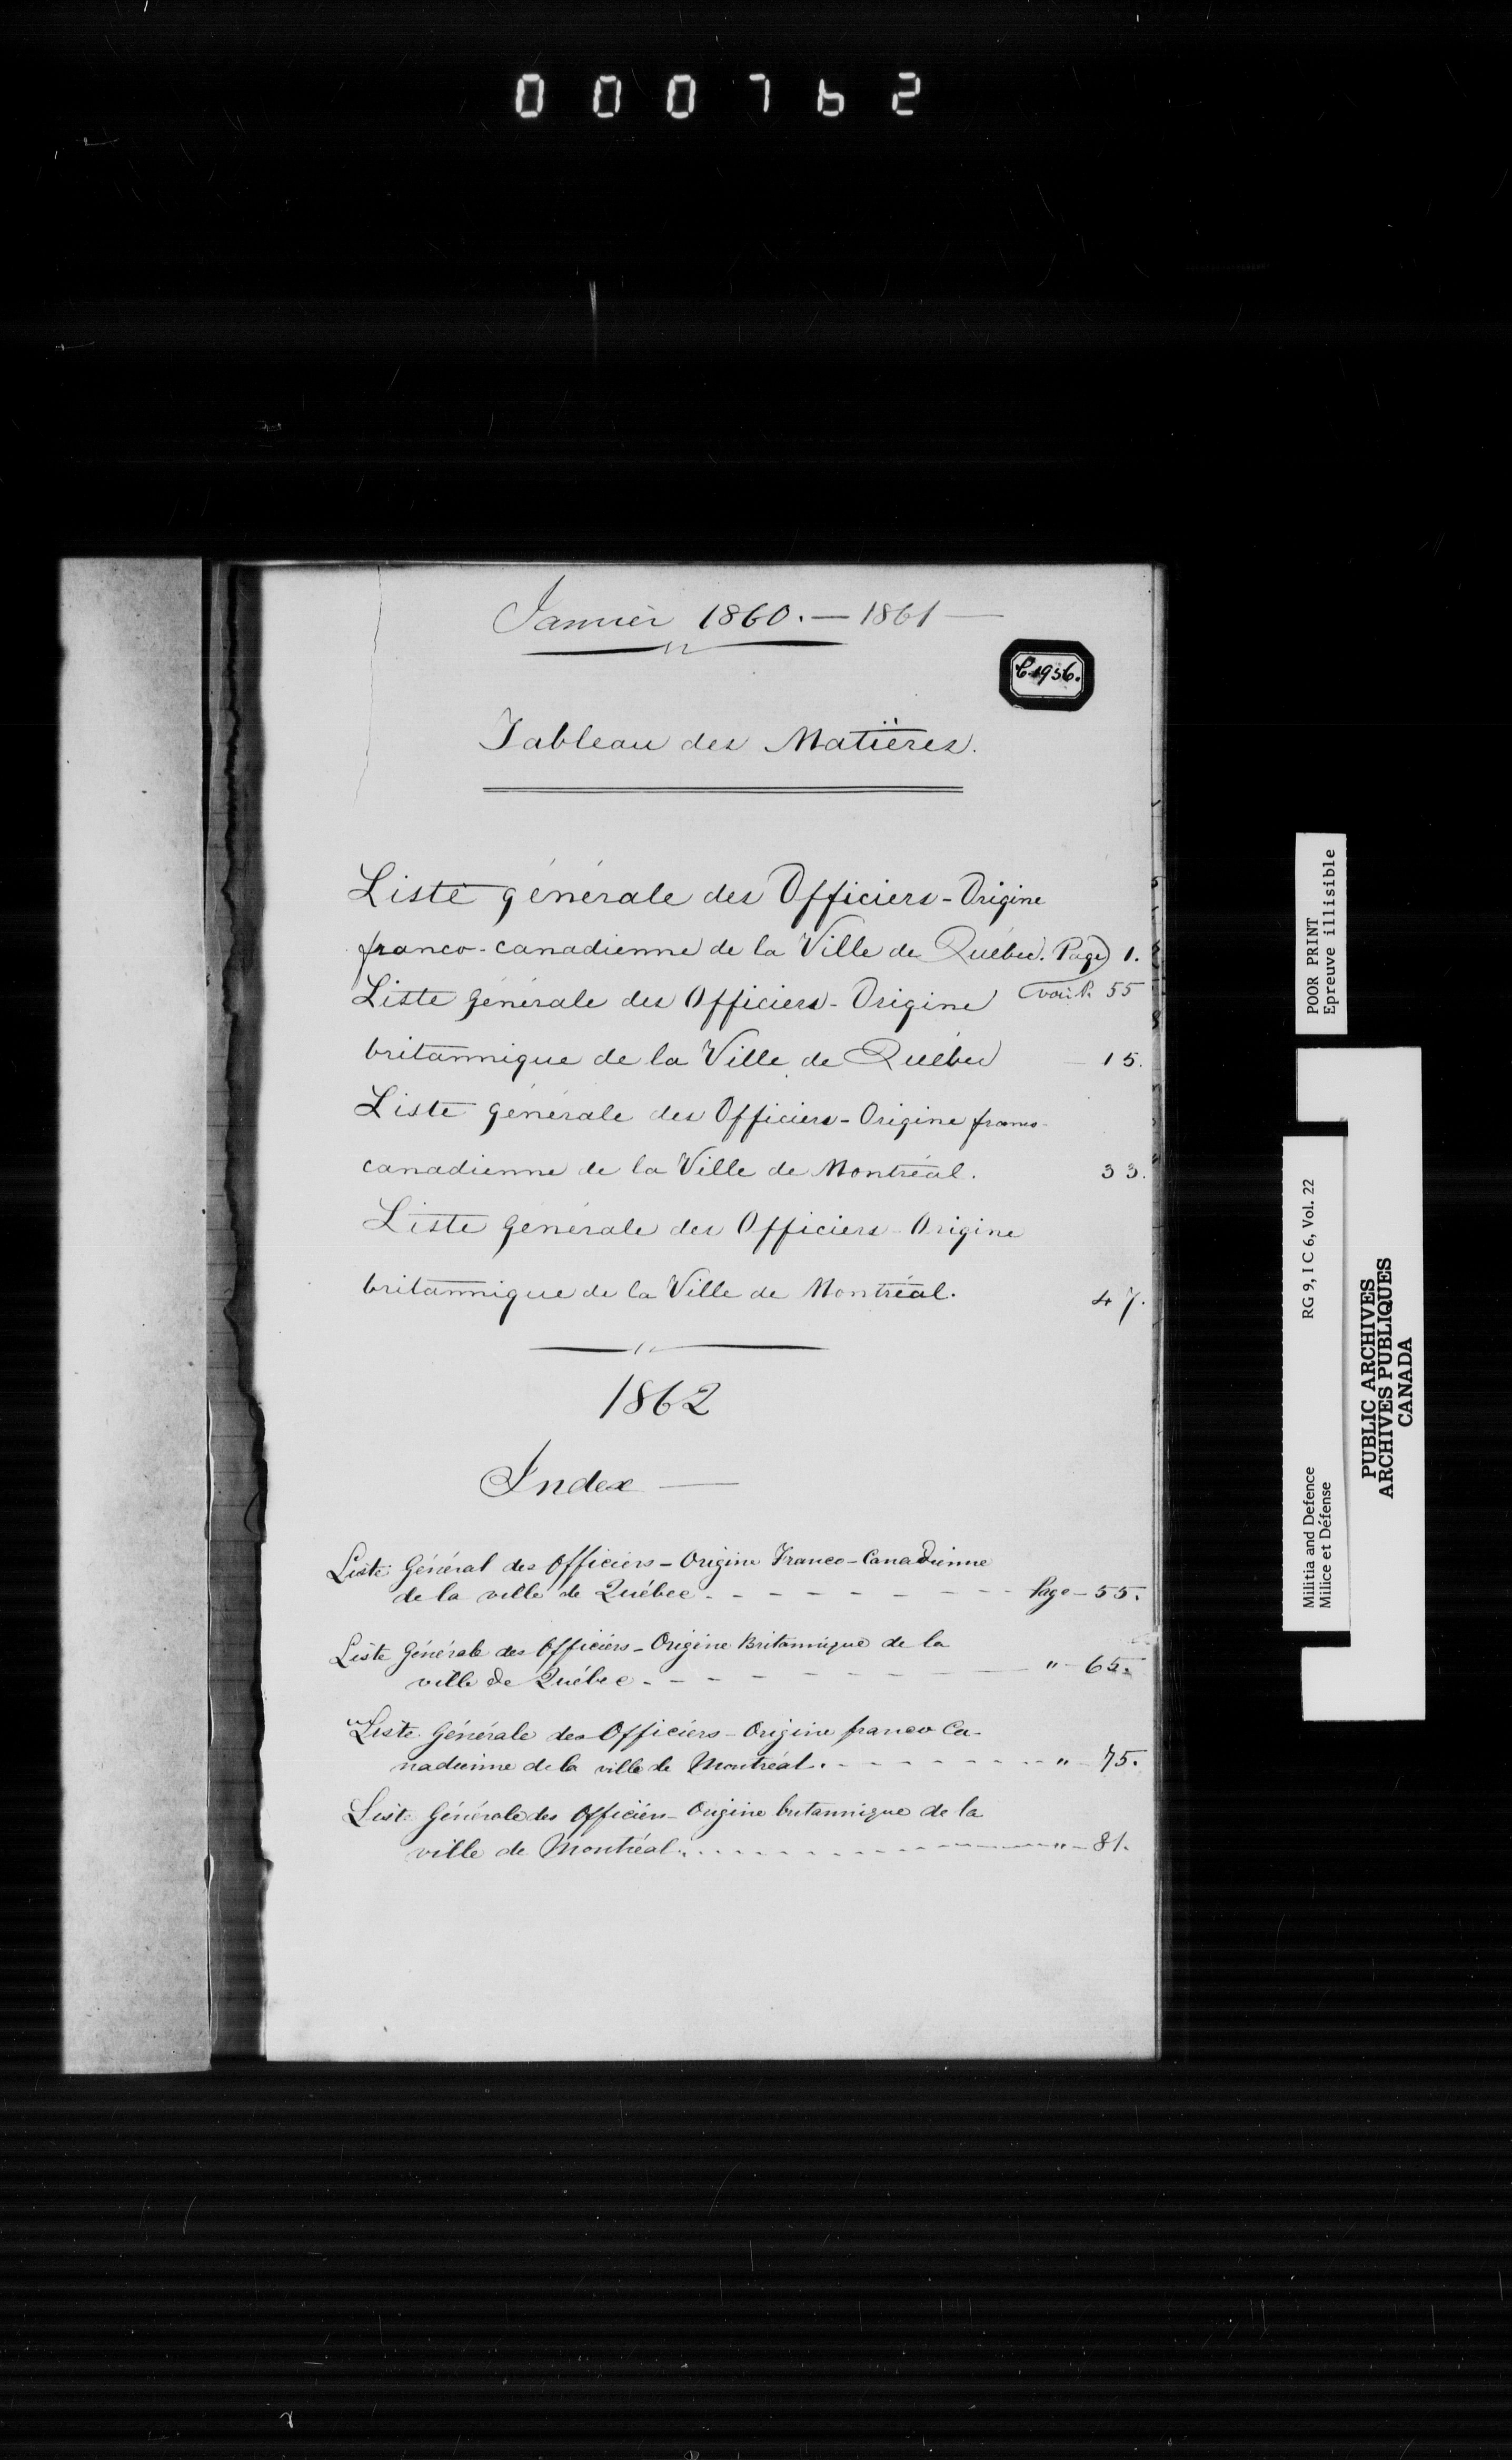 000762
Janvier 1860. — 1861 —
C1936.
Tableau des Matières.
Liste générale des Officiers - Origine
franco-canadienne de la Ville de Québec. Page 1.
voir P. 55
Liste générale des Officiers - Origine
britannique de la Ville de Québec — 15.
Liste générale des Officiers - Origine franco-
canadienne de la Ville de Montréal. 33.
Liste générale des Officiers - Origine
britannique de la Ville de Montréal. 47.
1862
Index —
Liste Général des Officiers - Origine Franco-Canadienne
de la ville de Québec - - - - - - - Page - 55.
Liste Générale des Officiers - Origine Britannique de la
ville de Québec - - - - - - - " - 65.
Liste Générale des Officiers - Origine franco Ca-
nadienne de la ville de Montréal. - - - - - - - " - 75.
Liste Générale des Officiers - Origine britannique de la
ville de Montréal. . . . . . . . - - - - " - 81.
POOR PRINT
Epreuve illisible
Militia and Defence RG 9, I C 6, Vol. 22
Milice et Défense
PUBLIC ARCHIVES
ARCHIVES PUBLIQUES
CANADA